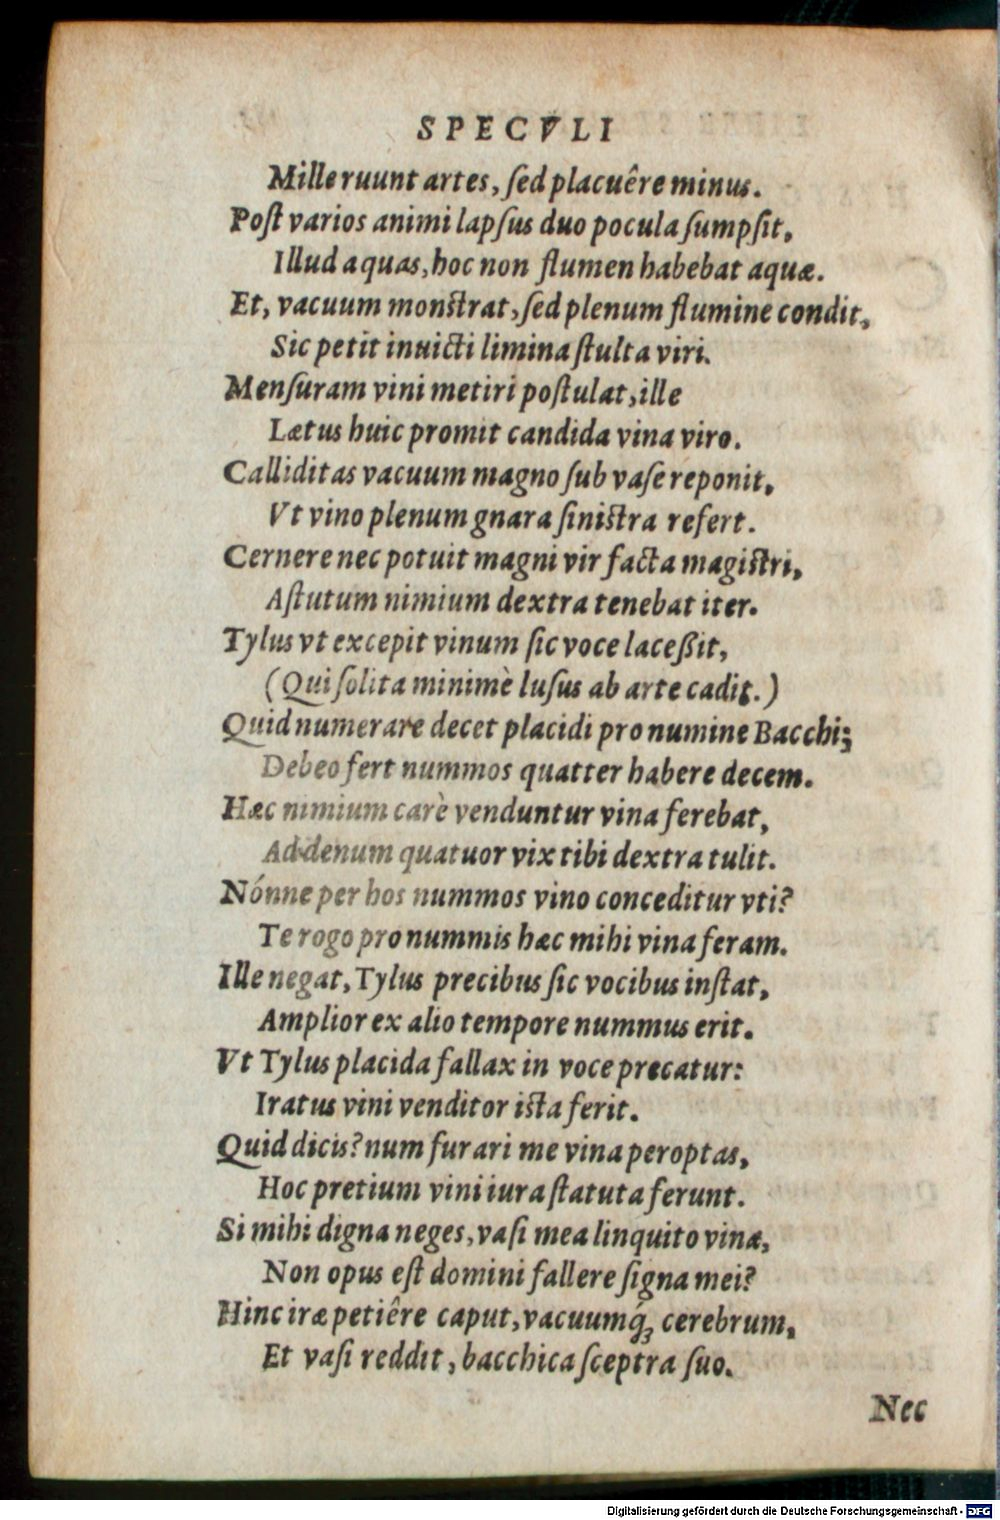 SPECVLI
Mille ruunt artes, ſed placuêre minus.
Poſt varios animi lapſus duo pocula ſumpſit,
Illud aquas, hoc non flumen habebat aquæ.
Et, vacuum monſtrat, ſed plenum flumine condit,
Sic petit inuicti limina ſtulta viri.
Menſuram vini metiri poſtulat, ille
Lætus huic promit candida vina viro.
Calliditas vacuum magno ſub vaſe reponit,
Vt vino plenum gnara ſiniſtra refert.
Cernere nec potuit magni vir facta magiſtri,
Aſtutum nimium dextra tenebat iter.
Tylus vt excepit vinum ſic voce laceßit,
(Qui ſolita minimè luſus ab arte cadit.)
Quid numerare decet placidi pro numine Bacchi;
Debeo fert nummos quatter habere decem.
Hæc nimium carè venduntur vina ferebat,
Ad denum quatuor vix tibi dextra tulit.
Nónne per hos nummos vino conceditur vti?
Te rogo pro nummis hæc mihi vina feram.
Ille negat, Tylus precibus ſic vocibus inſtat,
Amplior ex alio tempore nummus erit.
Vt Tylus placida fallax in voce precatur:
Iratus vini venditor iſta ferit.
Quid dicis? num furari me vina peroptas,
Hoc pretium vini iura ſtatuta ferunt.
Si mihi digna neges, vaſi mea linquito vinæ,
Non opus eſt domini fallere ſigna mei?
Hinc iræ petiêre caput, vacuumq́ꝫ cerebrum,
Et vaſi reddit, bacchica ſceptra ſuo.
Nec
Digitalisierung gefördert durch die Deutsche Forschungsgemeinschaft - DFG